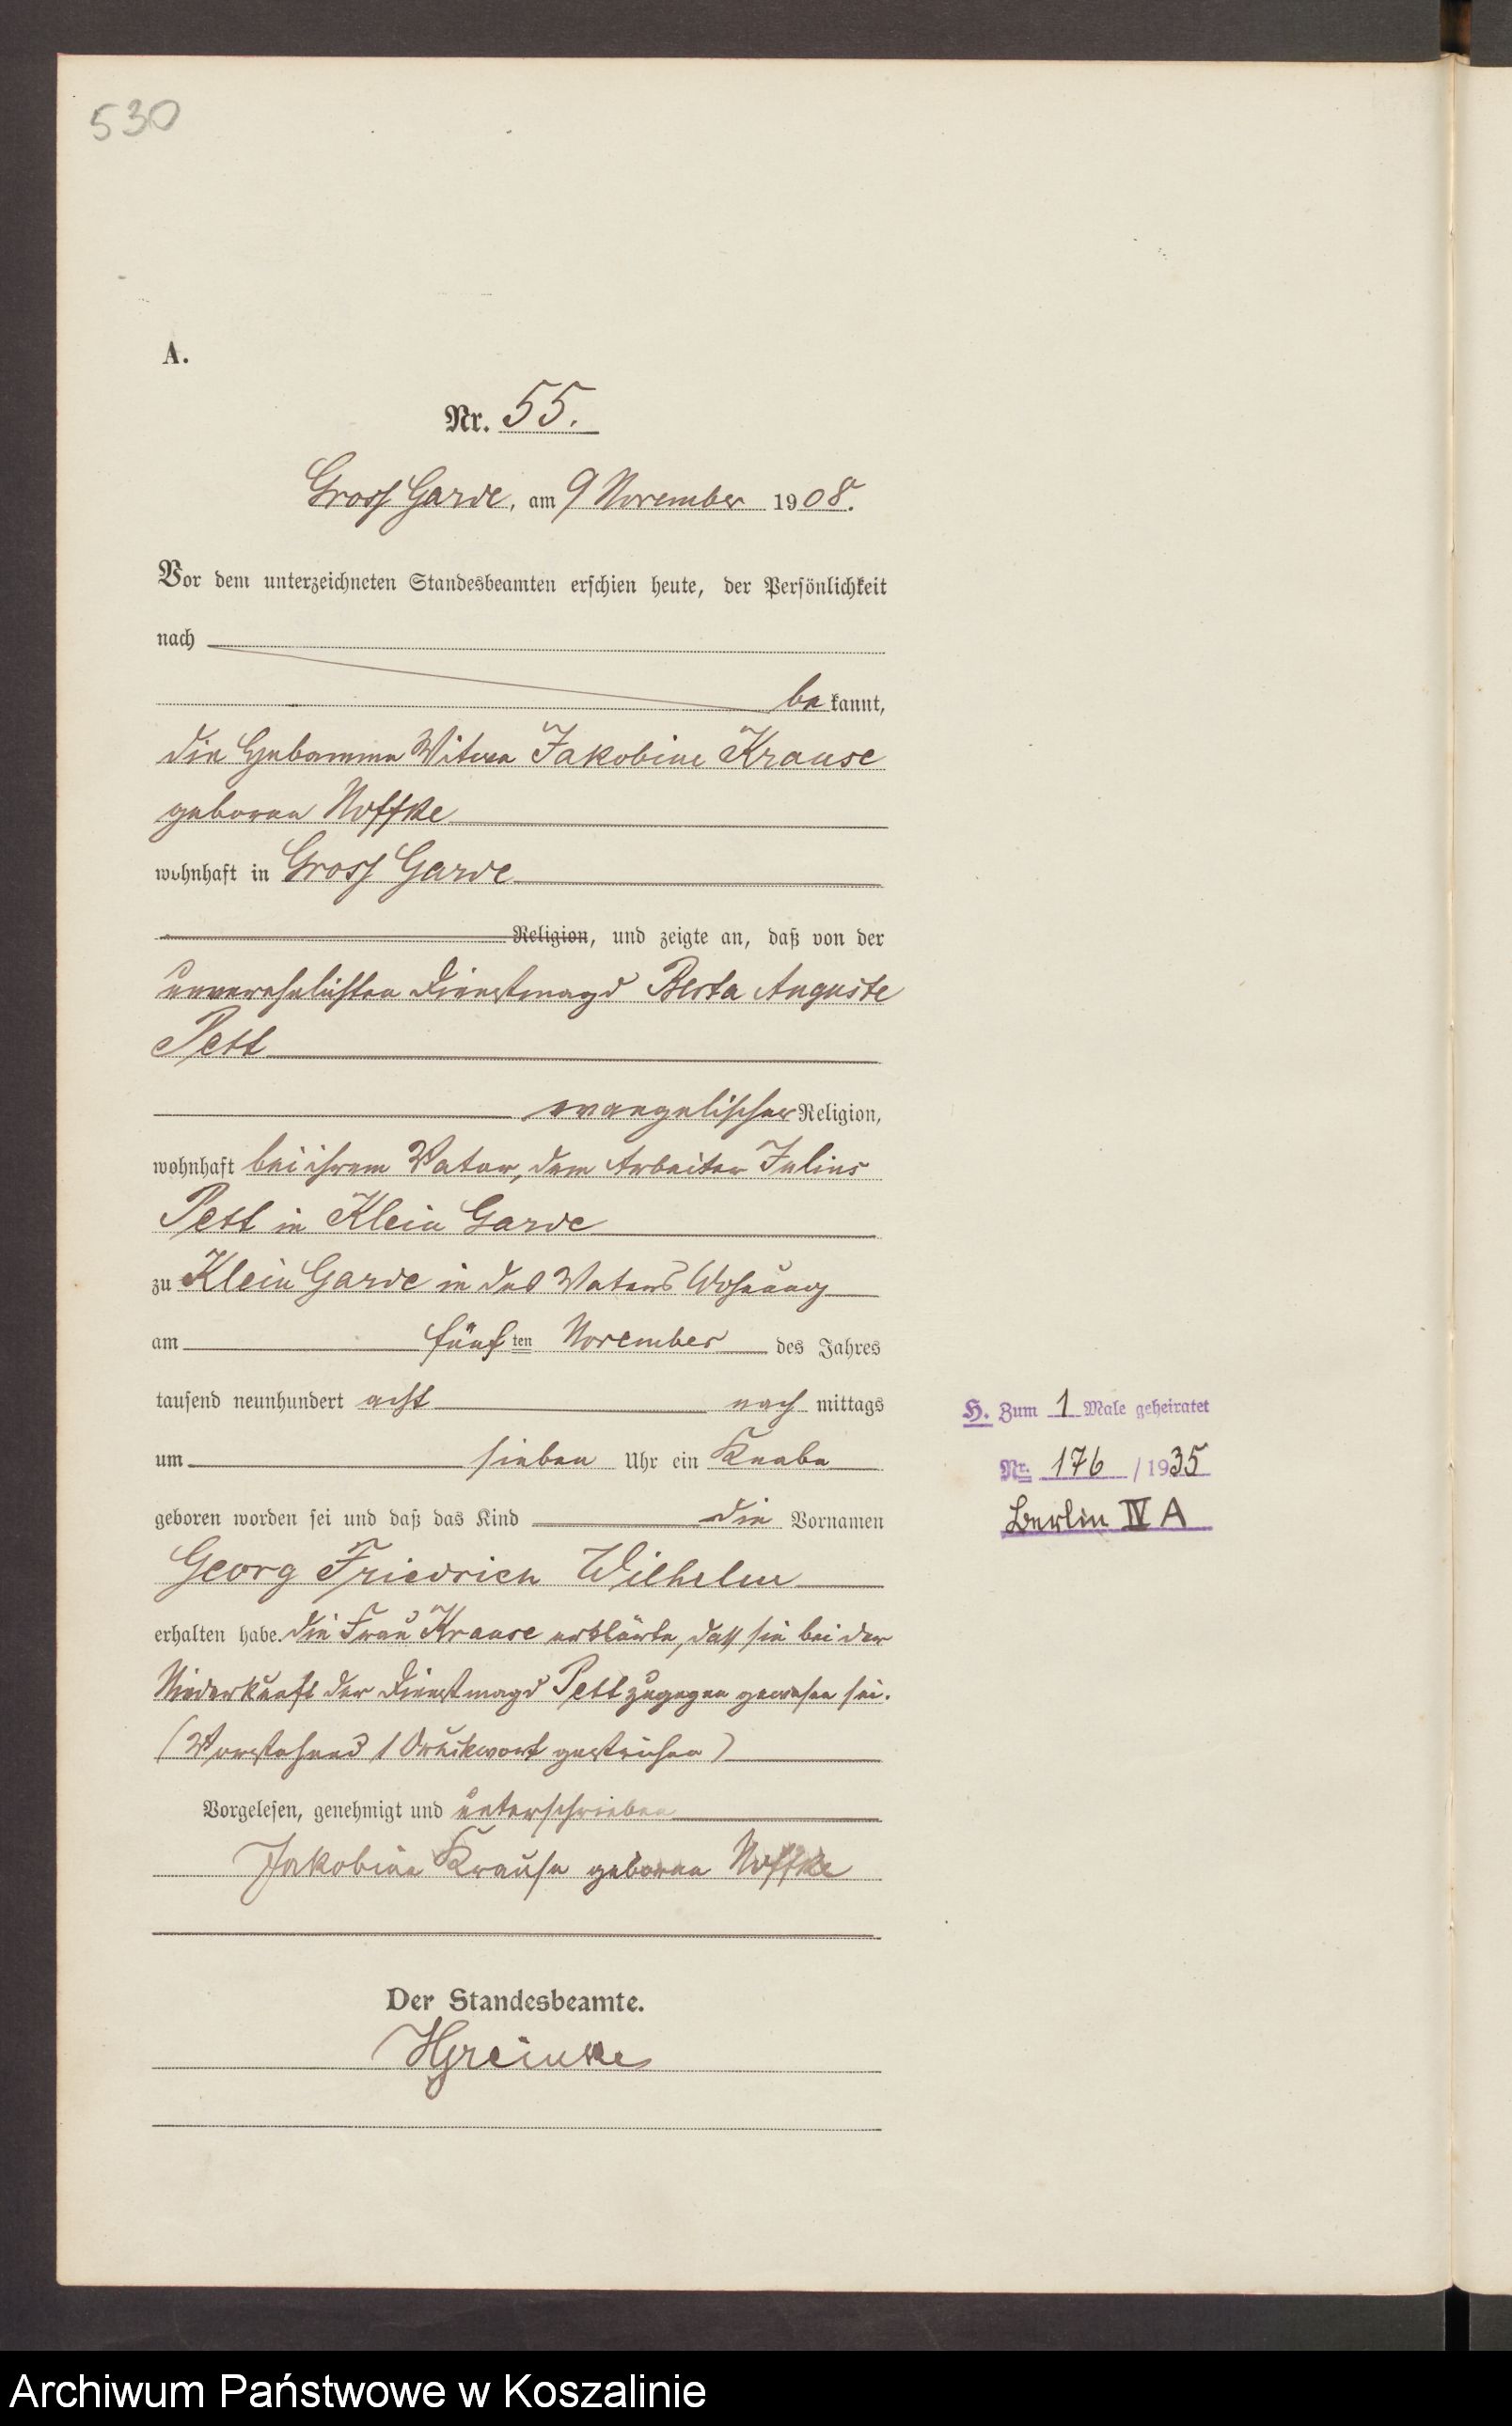 530
A.
Nr. 55.
Gross Garde, am 9 November 1908.
Vor dem unterzeichneten Standesbeamten erschien heute, der Persönlichkeit
nach
be kannt,
die Hebamme Witwe Jakobine Krause
geborene Noffke
wohnhaft in Gross Garde
Religion, und zeigte an, daß von der
unverehelichten Dienstmagd Berta Auguste
Pett
evangelischer Religion,
wohnhaft bei ihrem Vater, dem Arbeiter Julius
Pett in Klein Garde
zu Klein Garde in des Vaters Wohnung
am fünf ten November des Jahres
tausend neunhundert acht nach mittags
um sieben Uhr ein Knabe
geboren worden sei und daß das Kind die Vornamen
Georg Friedrich Wilhelm
erhalten habe. Die Frau Krause erklärte, dass sie bei der
Niederkunft der Dienstmagd Pett zugegen gewesen sei.
(Vorstehend 1 Druckwort gestrichen)
Vorgelesen, genehmigt und unterschrieben
Jakobine Krause geborene Noffke
Der Standesbeamte.
H. Zum 1 Male geheiratet
Nr. 176 / 1935
Berlin IV A
Archiwum Państwowe w Koszalinie